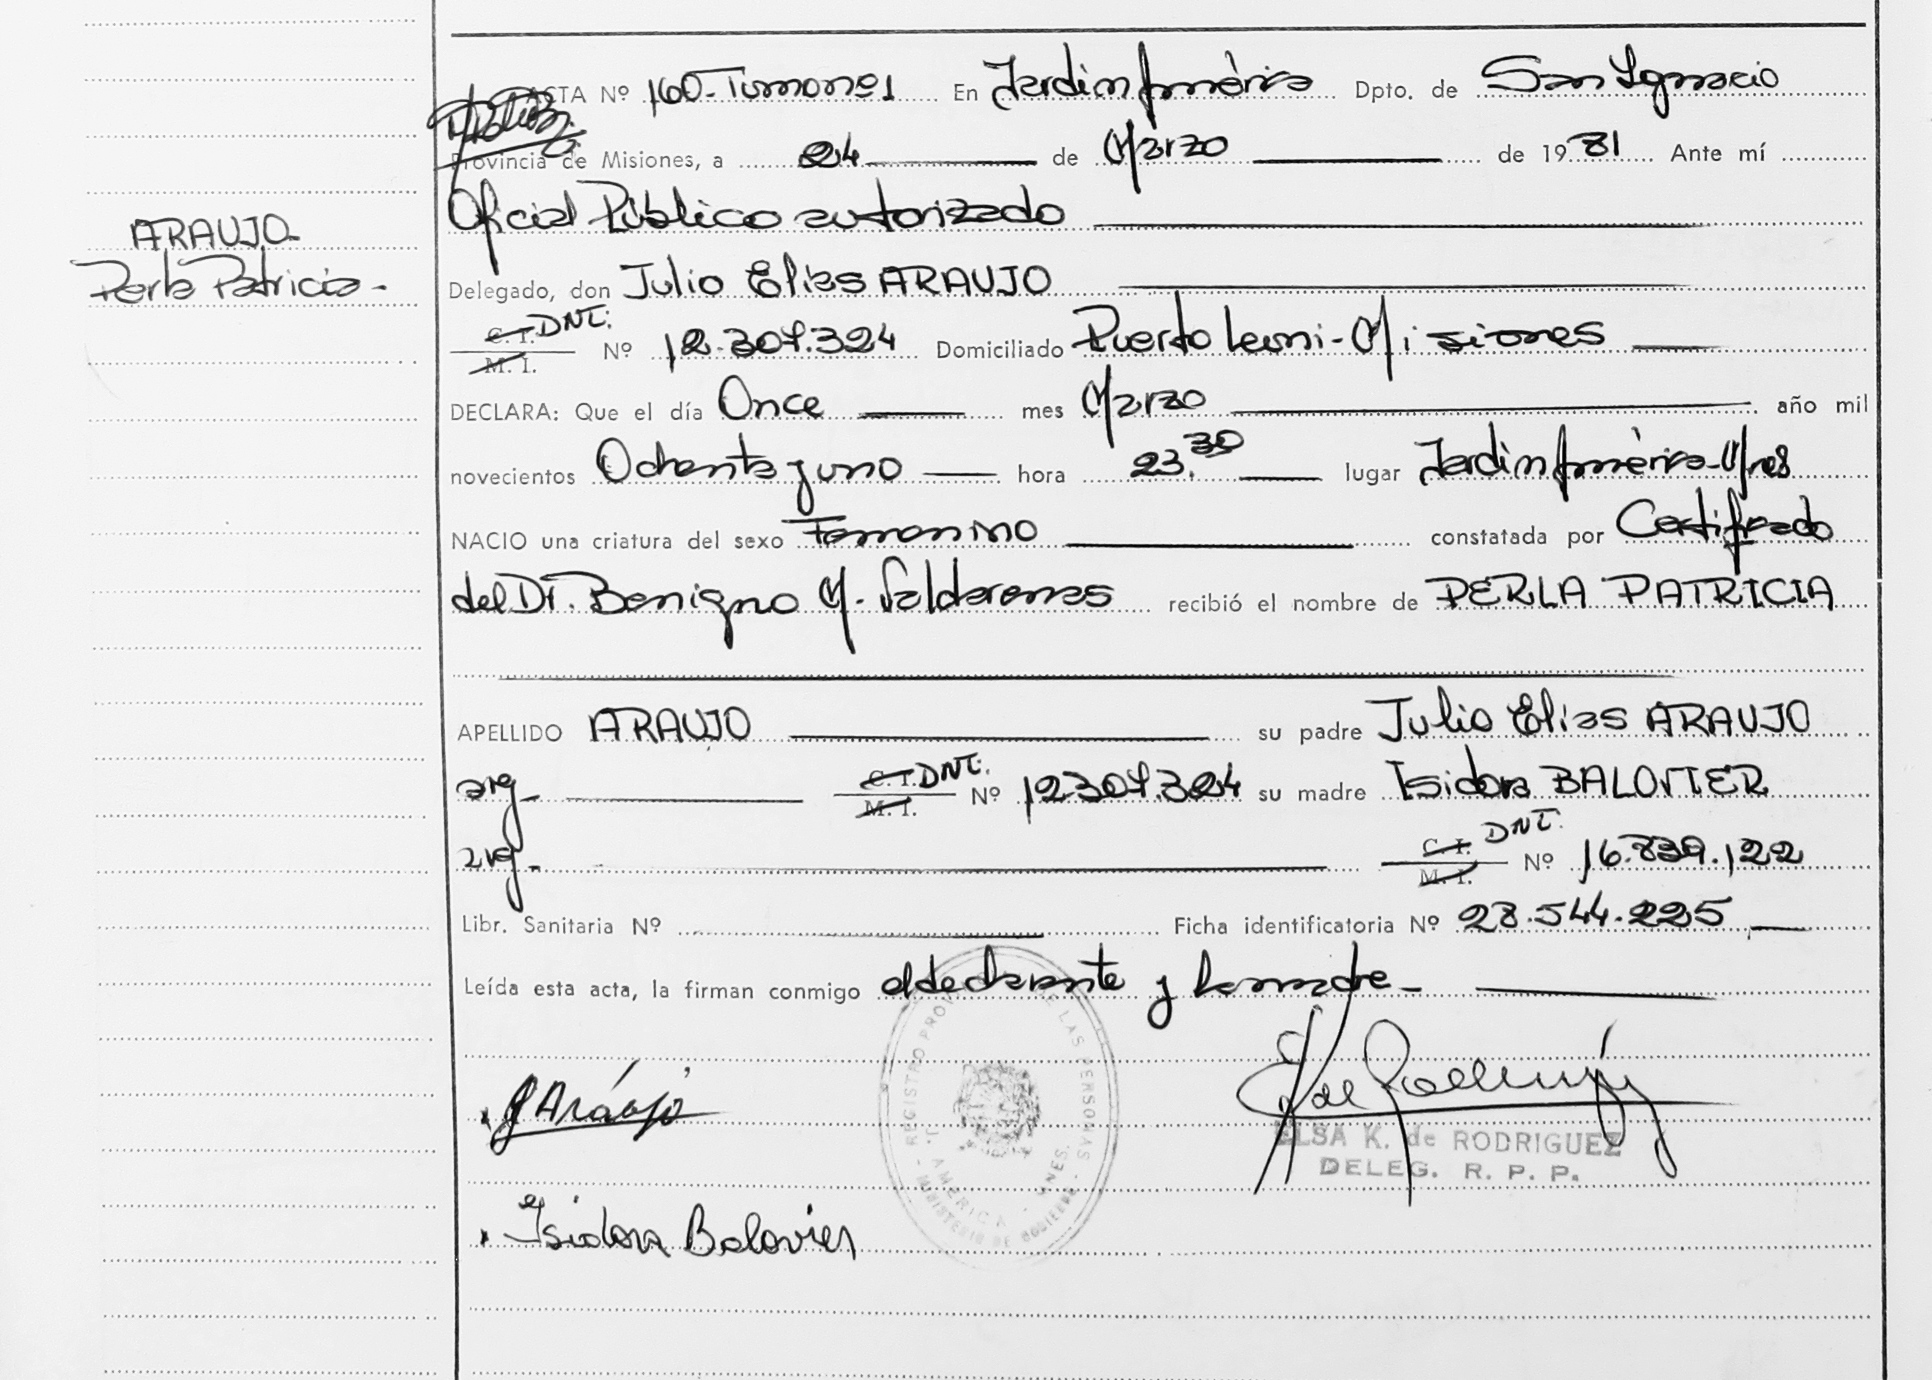 ACTA Nº 160-Tomo nº1 En Jardin América Dpto. de San Ignacio
Provincia de Misiones, a 24 de Marzo de 1981 Ante mí
Oficial Público autorizado
ARAUJO-
Perla Patricia-
Delegado, don Julio Elias ARAUJO
C. I. DNI.
M. I. Nº 12.307.324 Domiciliado Puerto Leoni-Misiones
DECLARA: Que el día Once mes Marzo año mil
novecientos Ochenta y uno hora 23.30 lugar Jardin América-Mnes
NACIO una criatura del sexo Femenino constatada por Certificado
del Dr. Benigno M. Valdarenas recibió el nombre de PERLA PATRICIA
APELLIDO ARAUJO su padre Julio Elias ARAUJO
arg- C. I. DNI. M. I. Nº 12307.324 su madre Isidora BALOVIER
arg- C. I. DNI. M. I. Nº 16.839.122
Libr. Sanitaria Nº Ficha identificatoria Nº 28.544.225
Leída esta acta, la firman conmigo el declarante y la madre-
J Araujo
ELSA K. de RODRIGUEZ
DELEG. R. P. P.
Isidora Balovier